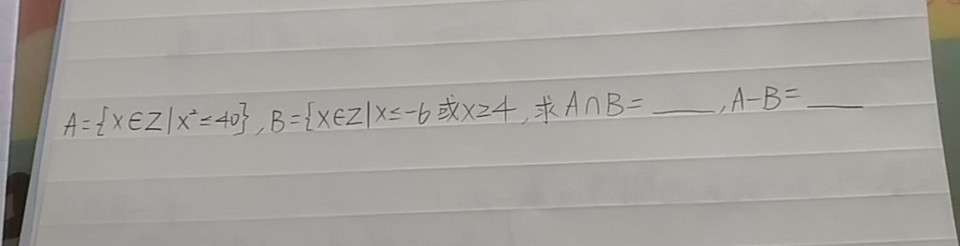 A={x∈Z|x²≤40},B={x∈Z|x≤-6或x≥4,求A∩B=____,A-B=____